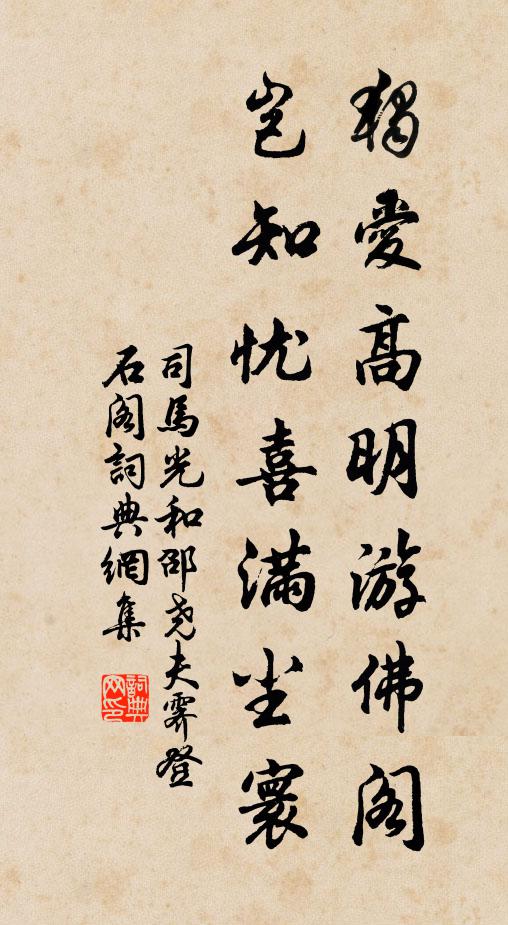 獨愛高明游佛阁
岂知忧喜滿尘寰
司馬光和邵尧夫霽登
石阁詞典網集
詞典
网印